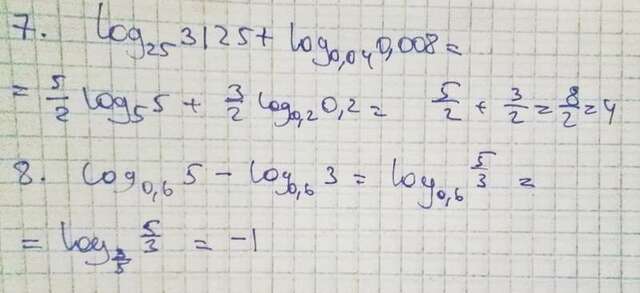 7. log₂₅ 3125 + log₀,₀₄ 0,008 =
= 5/2 log₅ 5 + 3/2 log₀,₂ 0,2 = 5/2 + 3/2 = 8/2 = 4
8. log₀,₆ 5 - log₀,₆ 3 = log₀,₆ 5/3 =
= log₃/₅ 5/3 = -1